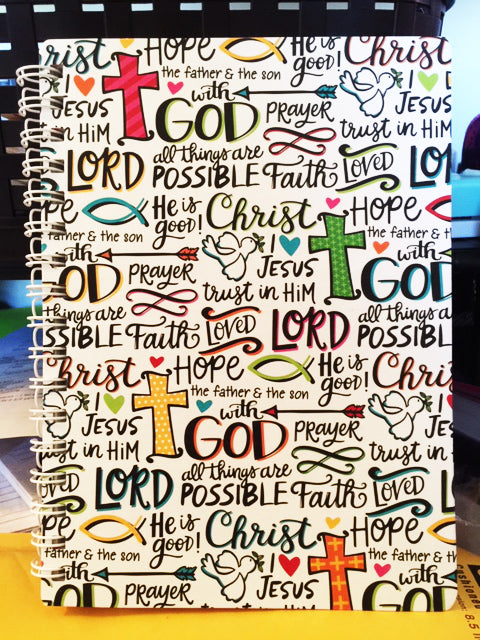 hrist HOPE He is good! Christ
I JESUS the father & the son I JESUS
in HiM with GOD PRAYER trust in HiM
LORD all things are POSSIBLE Faith LOVED LO
PE He is good! Christ HOPE
father & the son I JESUS the father & t
ith GOD PRAYER trust in HiM with GOD
things are POSSIBLE Faith LOVED LORD all things are POSSIBL
hrist HOPE He is good! Chri
I JESUS the father & the son I JESUS
ust in HiM with GOD PRAYER trust in HiM
OVED LORD all things are POSSIBLE Faith LOVED
PE He is good! Christ HOPE
father & the son I JESUS the father & t
ith GOD PRAYER trust in HiM with GO
fashione
8.5 i